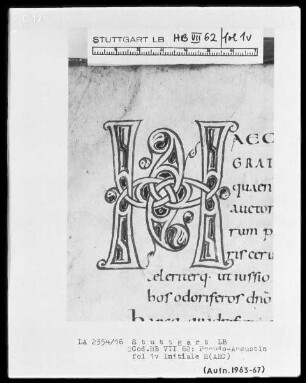 STUTTGART LB HB VII 62 fol 1v
HAEC
GRAT
quaen
auctor
rum p
tis ceru
celeriterq. ut iussio
bos odoriferos dn̄o
LA 2354/16 Stuttgart LB
Cod.HB VII 62: Pseudo-Augustin
fol 1v Initiale H(AEC)
(Aufn.1963-67)